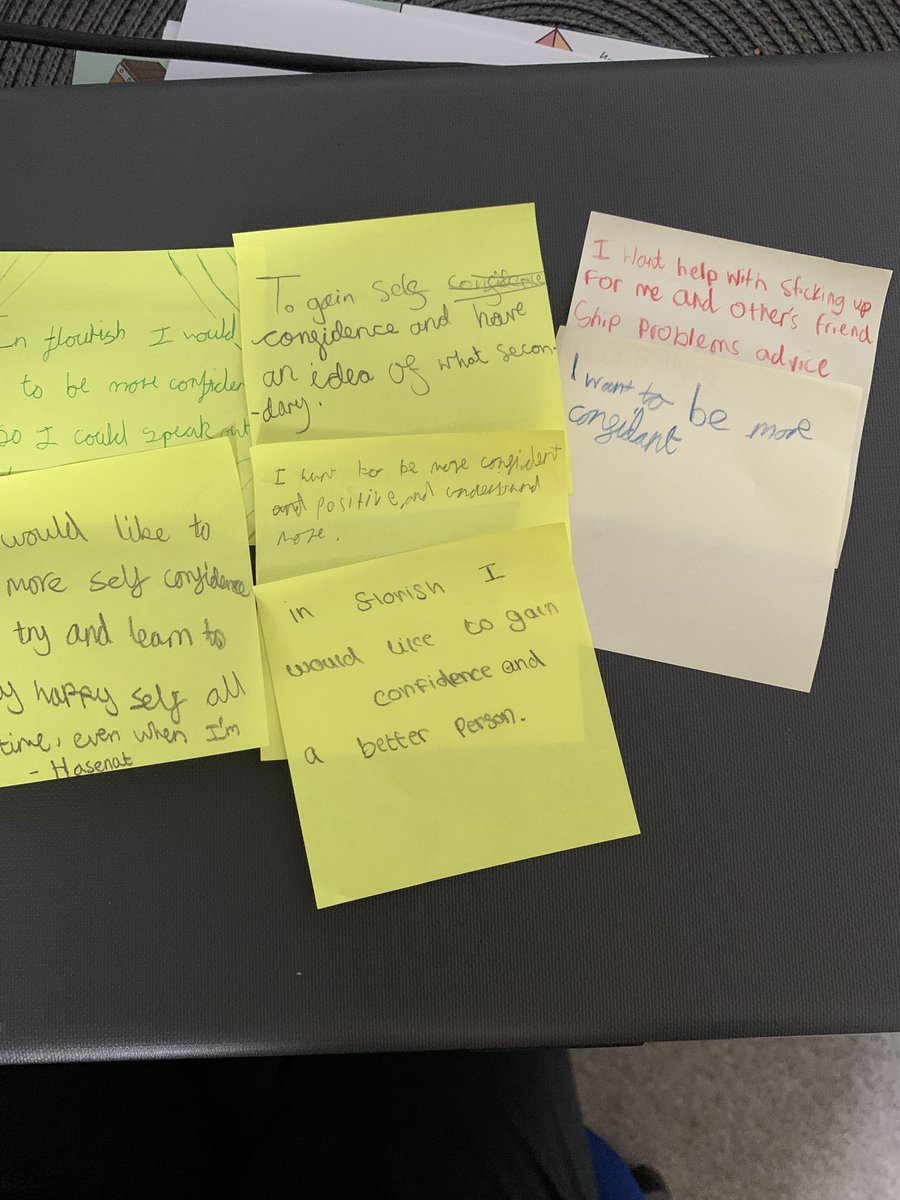 In flourish I would
to be more confiden
so I could speak out
To gain self confidence
confidence and have
an idea of what secon-
-dary.
I want help with sticking up
For me and other's friend
Ship problems advice
I want to be more
confidant
I want to be more confident
and positive, and understand
more.
would like to
more self confidence
try and learn to
my happy self all
time, even when I'm
- Hasenat
in florish I
would like to gain
confidence and
a better person.